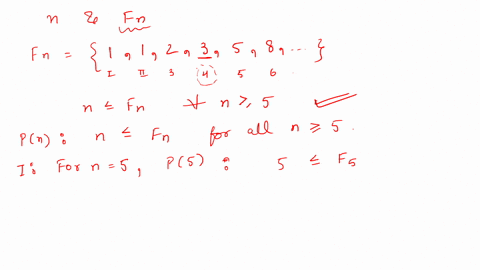 n & Fn
Fn = { 1, 1, 2, 3, 5, 8, ... }
I II 3 4 5 6
n ≤ Fn ∀ n ≥, 5
P(n) : n ≤ Fn for all n ≥ 5.
I: For n = 5, P(5) : 5 ≤ F5